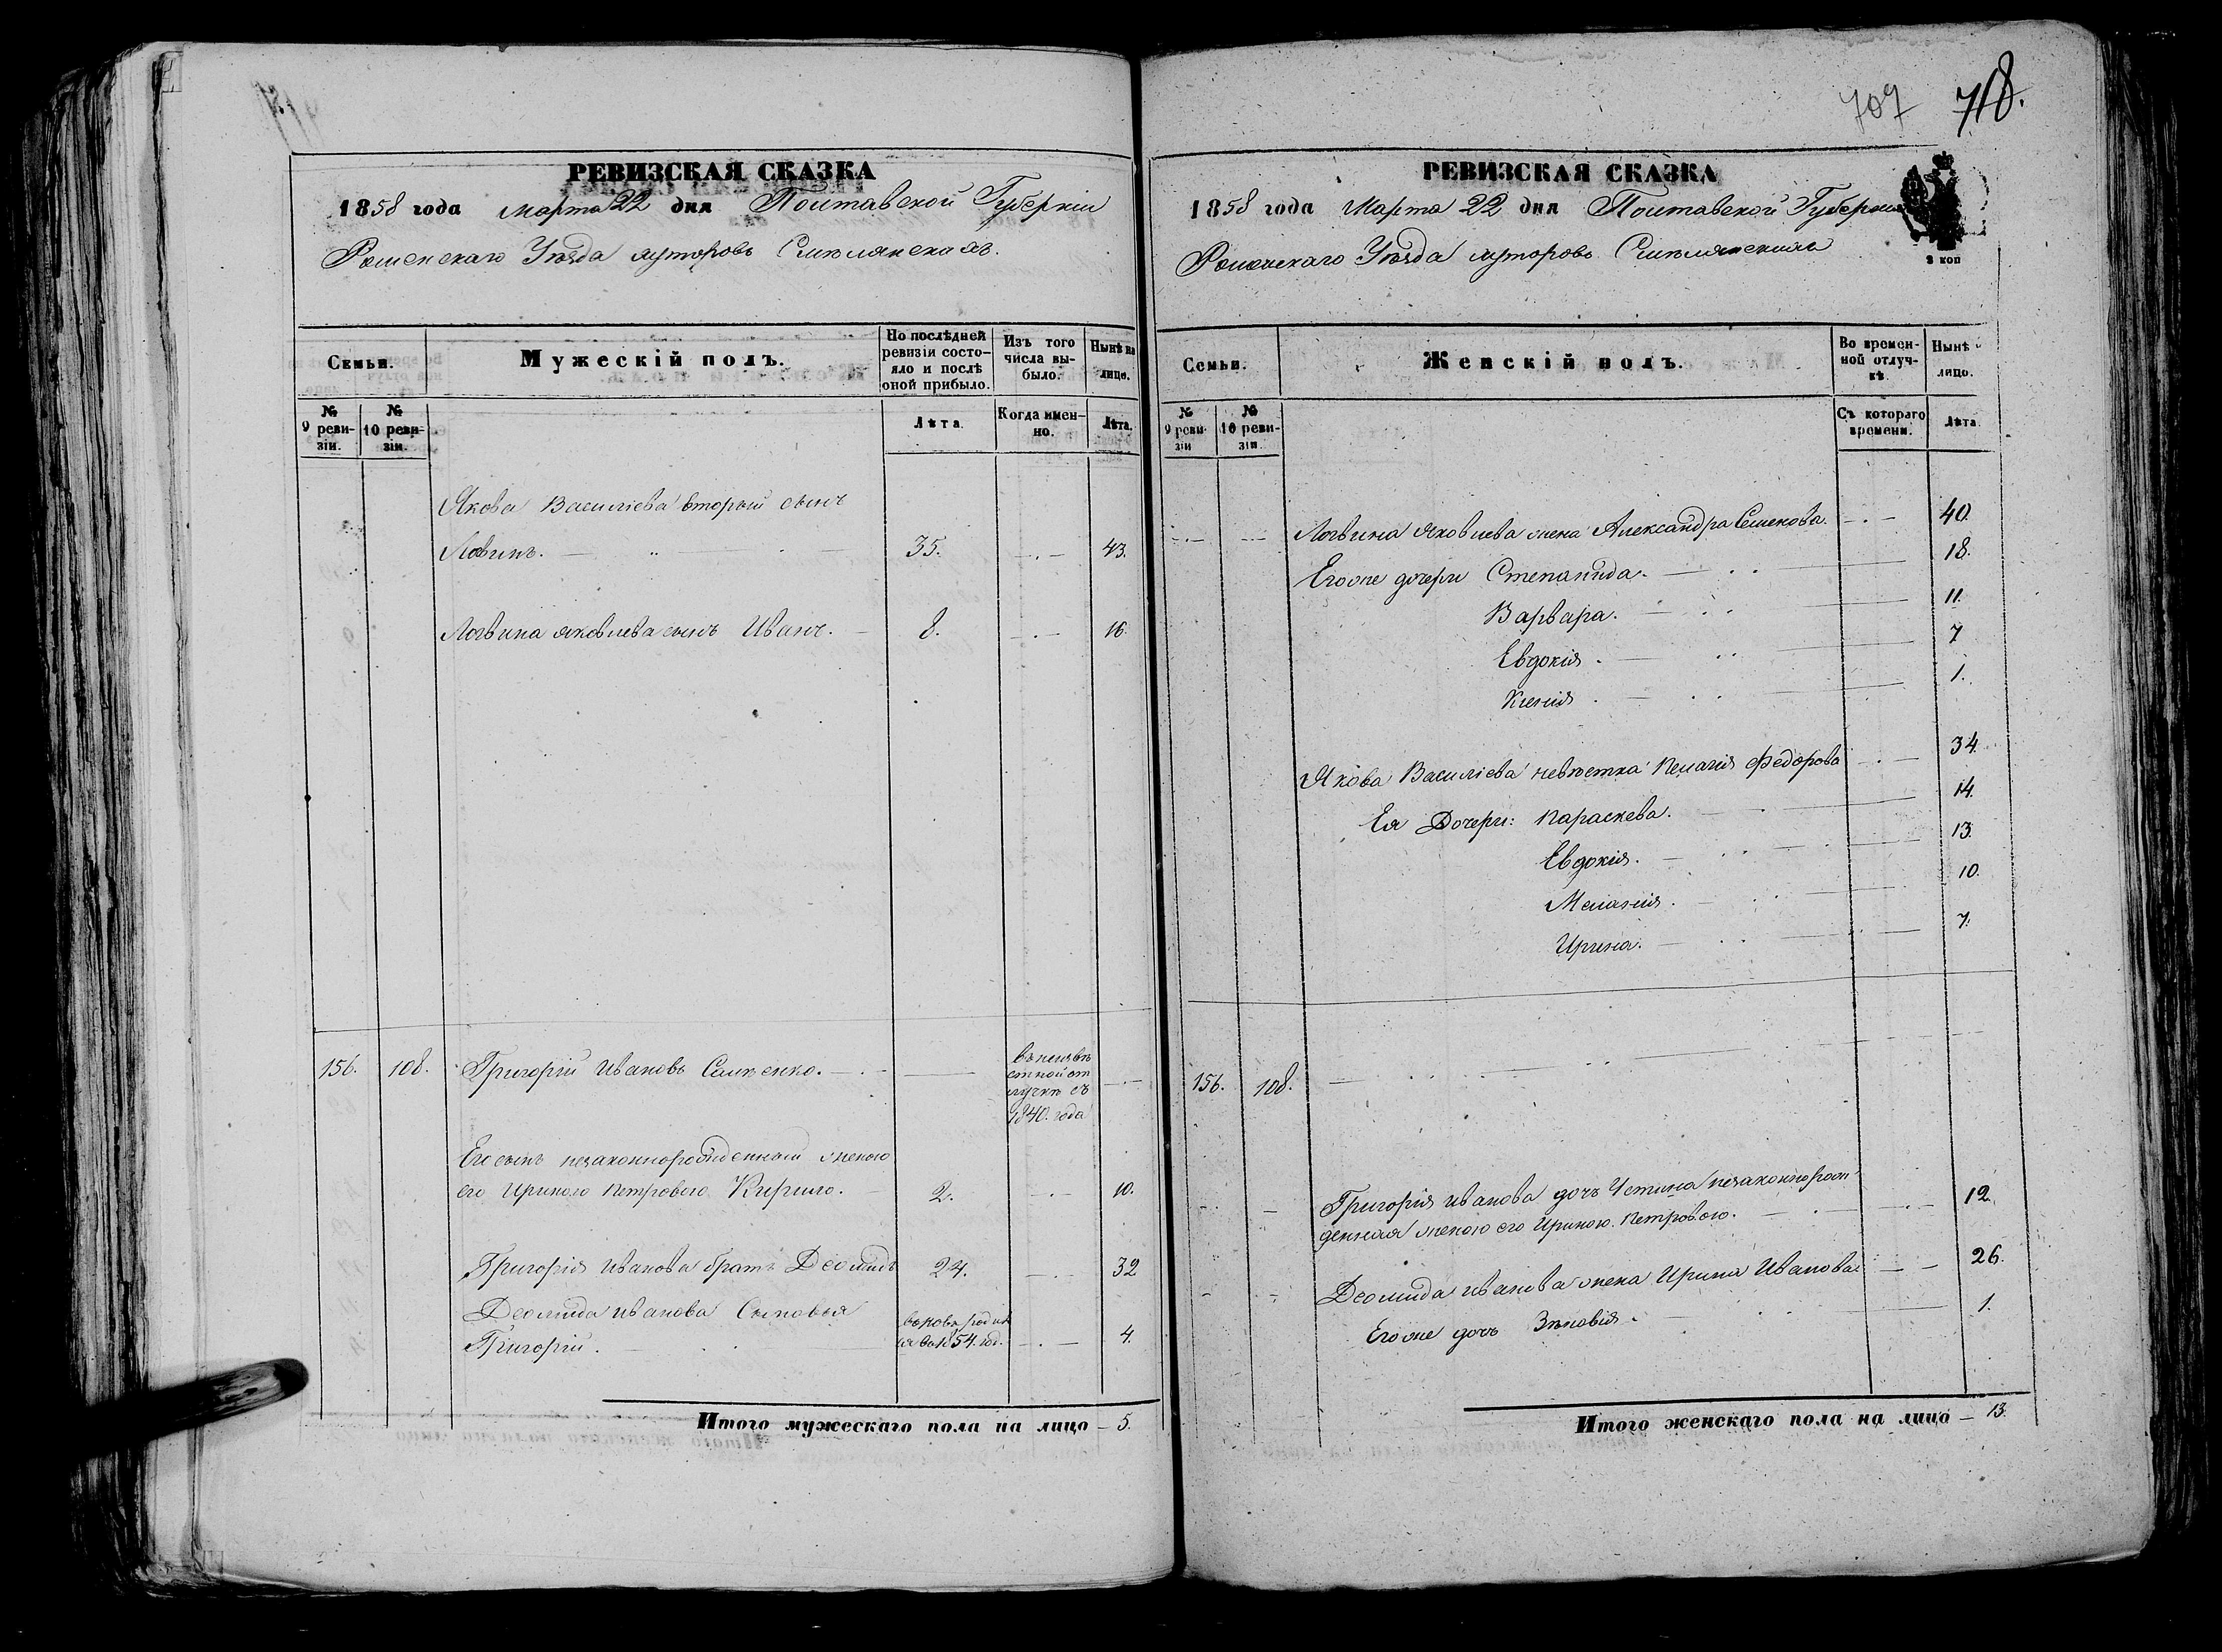 РЕВИЗСКАЯ СКАЗКА
1858 года Марта 22 дня Полтавской Губерніи
Роменскаго Уѣзда хуторовъ
Семьи.
Мужескій полъ.
По послѣдней ревизіи состояло и послѣ оной прибыло.
Изъ того числа выбыло.
Нынѣ на лицо.
№ 9 ревизіи.
№ 10 ревизіи.
Лѣта.
Когда именно.
Лѣта.
Якова Василіева второй сынъ
Логвинъ. 35. 43.
Логвина Яковлева сынъ Иванъ. 8. 16.
156. 108. Григорій Ивановъ въ неизвѣстной отлучкѣ съ 1840. года
Его сынъ незаконнорожденный женою
его Ириною Петровою Кирило. 2. 10.
Григорія Иванова братъ Деомидъ 24. 32
Деомида Иванова Сыновья
Григорій. 4.
Итого мужескаго пола на лицо – 5.
709 718.
РЕВИЗСКАЯ СКАЗКА
1858 года Марта 22 дня Полтавской Губерніи
Роменскаго Уѣзда хуторовъ
3 коп
Семьи.
Женскій полъ.
Во временной отлучкѣ.
Нынѣ на лицо.
№ 9 ревизіи
№ 10 ревизіи.
Съ котораго времени.
Лѣта.
Логвина Яковлева жена Александра Семенова. 40.
Егоже дочери Степанида. 18.
Варвара. 11.
Евдокія. 7
Ксенія. 1.
Якова Василіева невѣстка Пелагія Федорова 34.
Ея Дочери: Параскева. 14.
Евдокія. 13.
Меланія. 10.
Ирина. 7.
156. 108.
Григорія Иванова дочь Устина незаконнорож
денная женою его Ириною Петровою. 12.
Деомида Иванова жена Ирина Иванова 26.
Егоже дочь Зѣновія. 1.
Итого женскаго пола на лицо – 13.